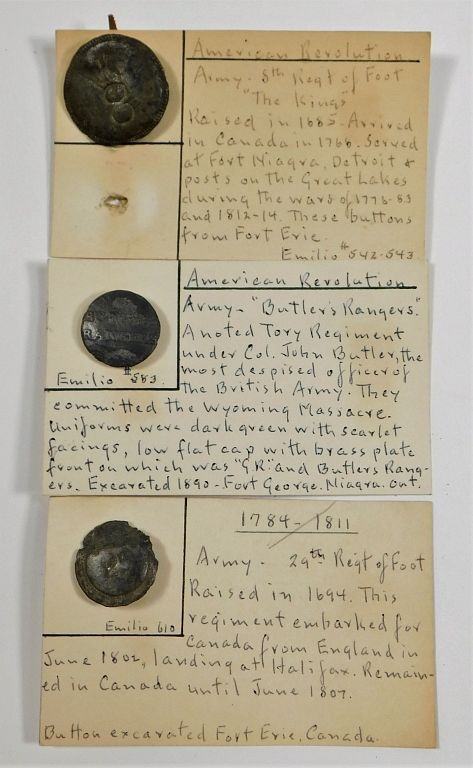 American Revolution
Army - 8th Regt of Foot
"The Kings"
Raised in 1685. Arrived
in Canada in 1768. Served
at Fort Niagra, Detroit &
posts on the Great Lakes
during the wars of 1778-83
and 1812-14. These buttons
from Fort Erie.
Emilio #542-543
American Revolution
Army - "Butler's Rangers".
A noted Tory Regiment
under Col. John Butler, the
most despised officer of
the British Army. They
Emilio #583.
committed the Wyoming Massacre.
Uniforms were dark green with scarlet
facings, low flat cap with brass plate
front on which was "G R" and Butlers Rang-
ers. Excavated 1890 - Fort George. Niagra. Ont.
1784-1811
Army - 29th Regt of Foot
Raised in 1694. This
regiment embarked for
Canada from England in
Emilio 610
June 1802, landing at Halifax. Remain-
ed in Canada until June 1807.
Button excavated Fort Erie, Canada.